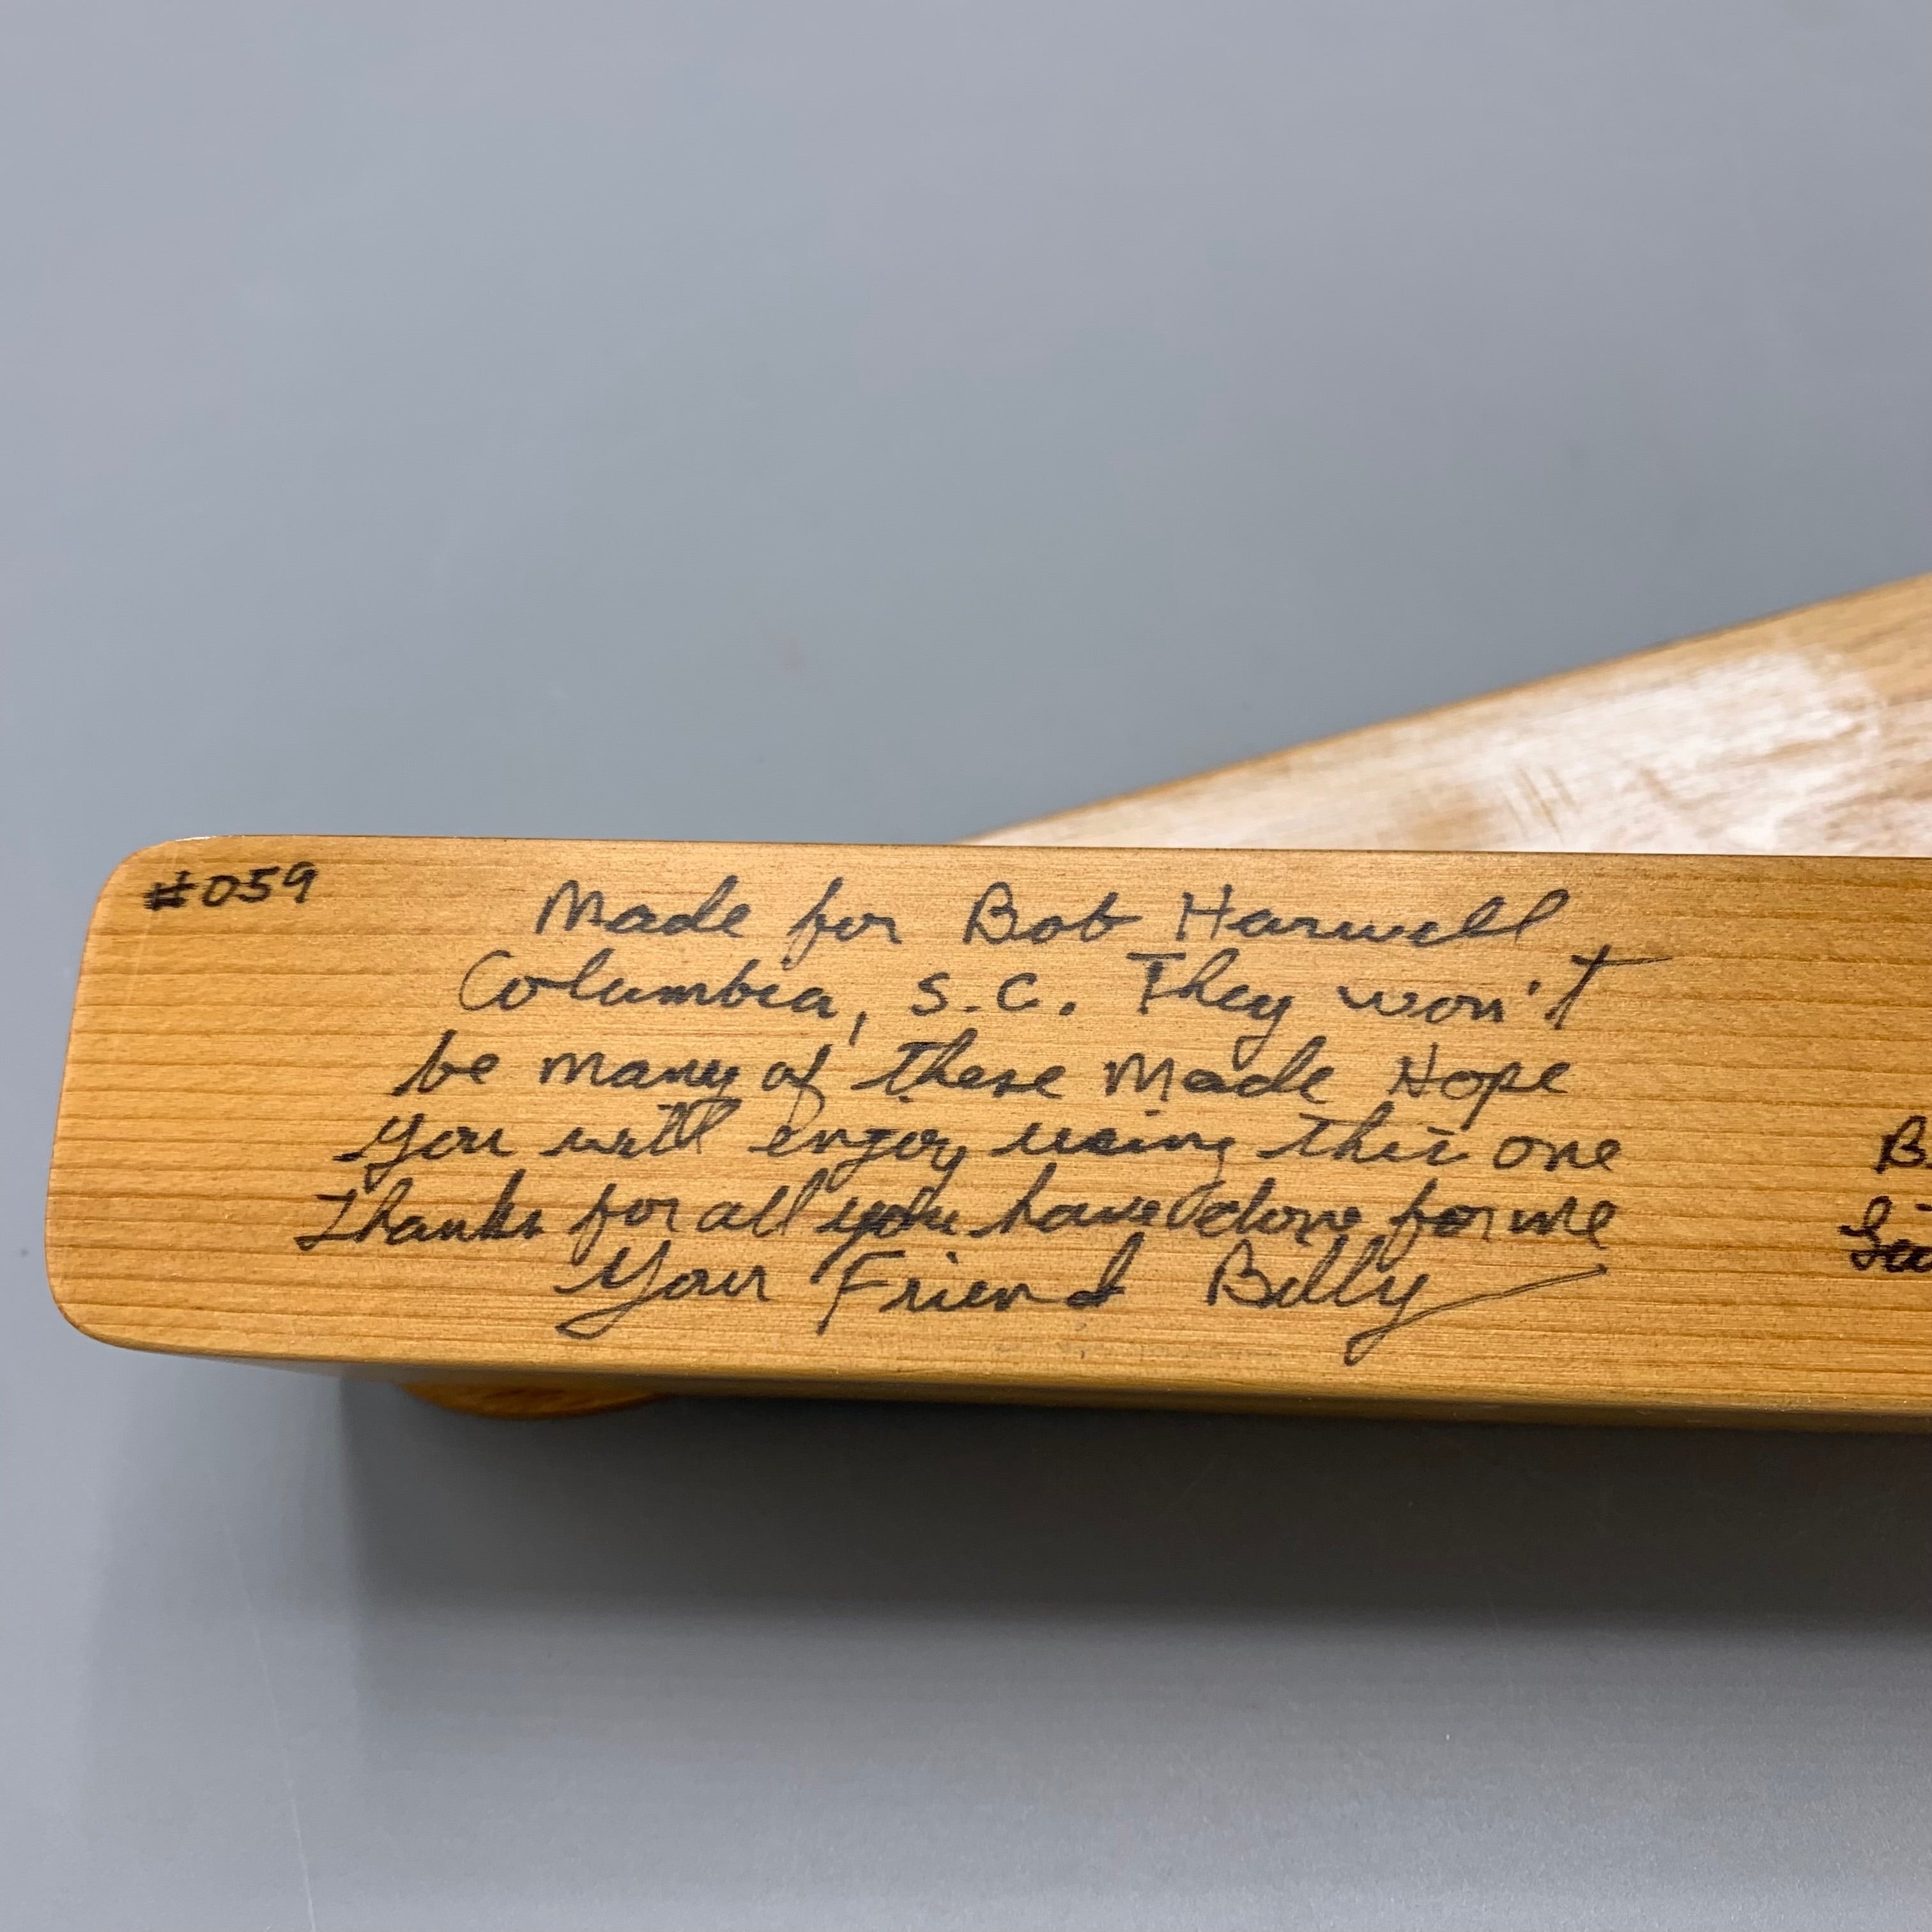 #059
Made for Bob Harwell
Columbia, S.C. They won't
be many of these Made Hope
You will enjoy using this one
Thanks for all you have done for me
Your Friend Billy